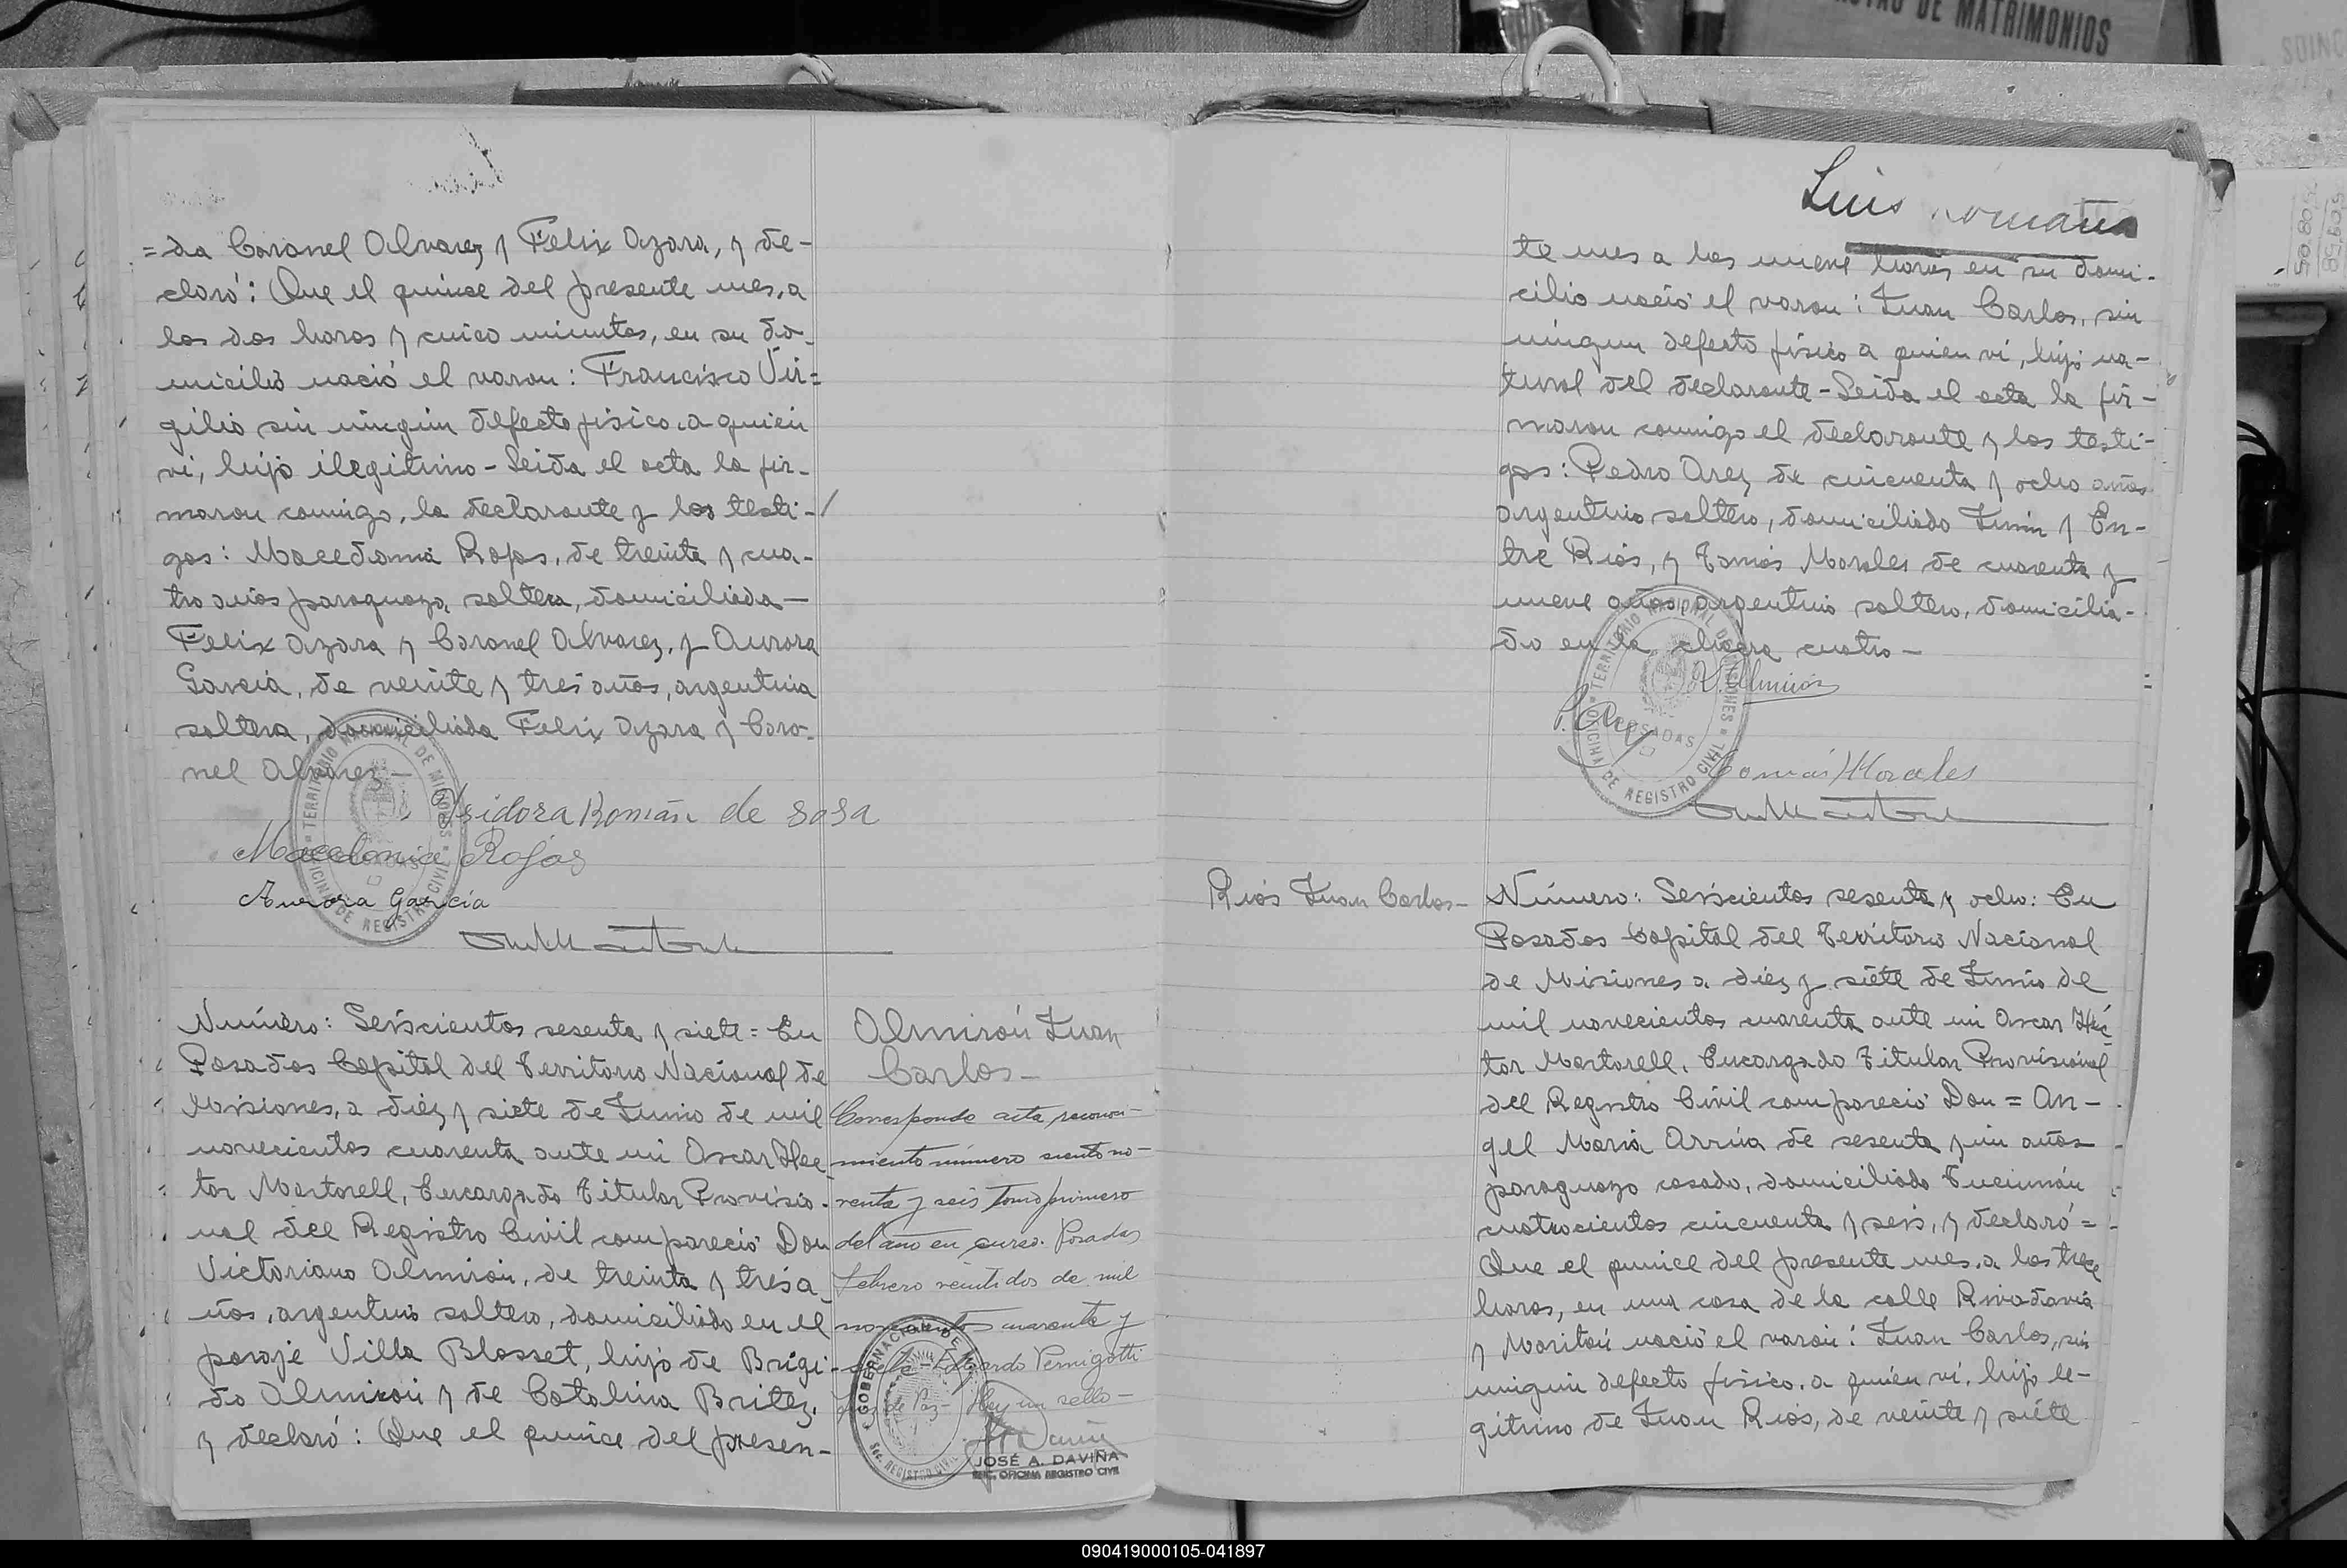 =da Coronel Alvarez y Felix Azara, y de-
claró: Que el quince del presente mes, a
las dos horas y cinco minutos, en su do-
micilio nació el varon: Francisco Vir=
gilio sin ningún defecto fisico a quien
ví, hijo ilegitimo - Leida el acta la fir-
maron comigo, la declarante y los testi-
gos: Macedonia Rojas, de treinta y cua-
tro años paraguaya, soltera, domiciliada -
Felix Azara y Coronel Alvarez, y Aurora
García, de veinte y tres años, argentina
soltera, domiciliada Felix Azara y Coro-
nel Alvarez -
Isidora Román de Sosa
Macedonia Rojas
Aurora García
TERRITORIO NACIONAL DE MISIONES
OFICINA DE REGISTRO CIVIL
Número: Seiscientos sesenta y siete = En
Posadas Capital del Territorio Nacional de
Misiones, a diéz y siete de Junio de mil
novecientos cuarenta ante mi Oscar Hec
tor Martorell, Encargado Titular Provisio-
nal del Registro Civil compareció Don
Victoriano Almirón, de treinta y tres a-
ños, argentino soltero, domiciliado en el
paraje Villa Blosset, hijo de Brigi-
do Almiron y de Catalina Britez,
y declaró: Que el quince del presen-
Almirón Juan
Carlos -
Corresponde acta reconoci-
miento número ciento no-
venta y seis tomo primero
del año en curso. Posadas
Febrero veintidos de mil
novecientos cuarenta y
Edgardo Pernigotti
Juez de Paz - Hay un sello -
GOBERNACION DE
SEC. REGISTRO CIVIL
JOSÉ A. DAVIÑA
ENC. OFICINA REGISTRO CIVIL
Luis
te mes a las nueve horas en su domi-
cilio nació el varon: Juan Carlos, sin
ningun defecto físico a quien ví, hijo na-
tural del declarante - Leida el acta la fir-
maron conmigo el declarante y los testi-
gos: Pedro Arez de cincuenta y ocho años
argentino soltero, domiciliado Junín y En-
tre Rios, y Tomás Morales de cuarenta y
nueve años, argentino soltero, domicilia-
do en la chacra cuatro -
V. Almirón
Tomás Morales
TERRITORIO NACIONAL DE MISIONES
POSADAS
OFICINA DE REGISTRO CIVIL
Rios Juan Carlos -
Número: Seiscientos sesenta y ocho: En
Posadas Capital del Territorio Nacional
de Misiones a diéz y siéte de Junio de
mil novecientos cuarenta ante mi Oscar Héc
tor Martorell, Encargado Titular Provisional
del Registro Civil compareció Don = An-
gel Maria Arrúa de sesenta y un años
paraguayo casado, domiciliado Tucumán
cuatrocientos cincuenta y seis, y declaró =
Que el quince del presente mes, a las trece
horas, en una casa de la calle Rivadavia
y Maritán nació el varón: Juan Carlos, sin
ningún defecto físico, a quién ví, hijo le-
gitimo de Juan Rios, de veinte y siéte
DE MATRIMONIOS
090419000105-041897